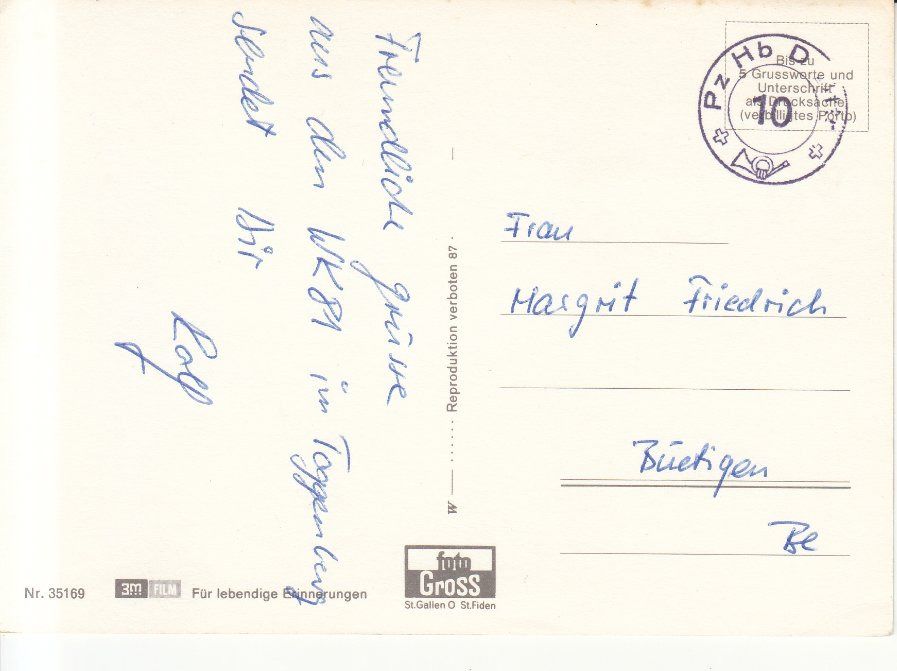 Freundliche Grüsse
aus dem WK 81 im Toggenburg
sendet Dir
Ralf
W
Reproduktion verboten 87
Pz Hb D
10
Bis zu
5 Grussworte und
Unterschrift
als Drucksache
(verbilligtes Porto)
Frau
Margrit Friedrich
Büetigen
Be
Nr. 35169
3M FILM
Für lebendige Erinnerungen
foto
Gross
St.Gallen O St.Fiden